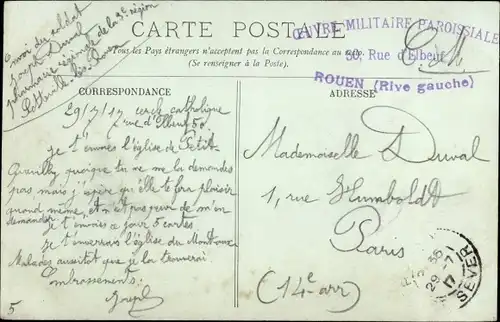 Envoi du soldat
Joseph Duval
pharmacie régionale de la 3e région
Sotteville les Rouen
CARTE POSTALE
Tous les Pays étrangers n'acceptent pas la Correspondance au recto.
(Se renseigner à la Poste).
ŒUVRE MILITAIRE PAROISSIALE
50, Rue d'Elbeuf
ROUEN (Rive gauche)
CORRESPONDANCE
ADRESSE
29/7/17 cercle catholique
rue d'Elbeuf 50.
Je t'envoies l'église de Petit
Quevilly quoique tu ne me la demandes
pas mais j'espère qu'elle te fera plaisir
quand même, et n'ait pas peur de m'en
demander
je t'envoies ce jour 5 cartes.
je t'enverrai l'église du
Malades aussitôt que je la trouverai
Embrassements.
Joseph
Mademoiselle Duval
1, rue Humboldt
Paris
(14e arr)
35
29-7
17
SEVER
5